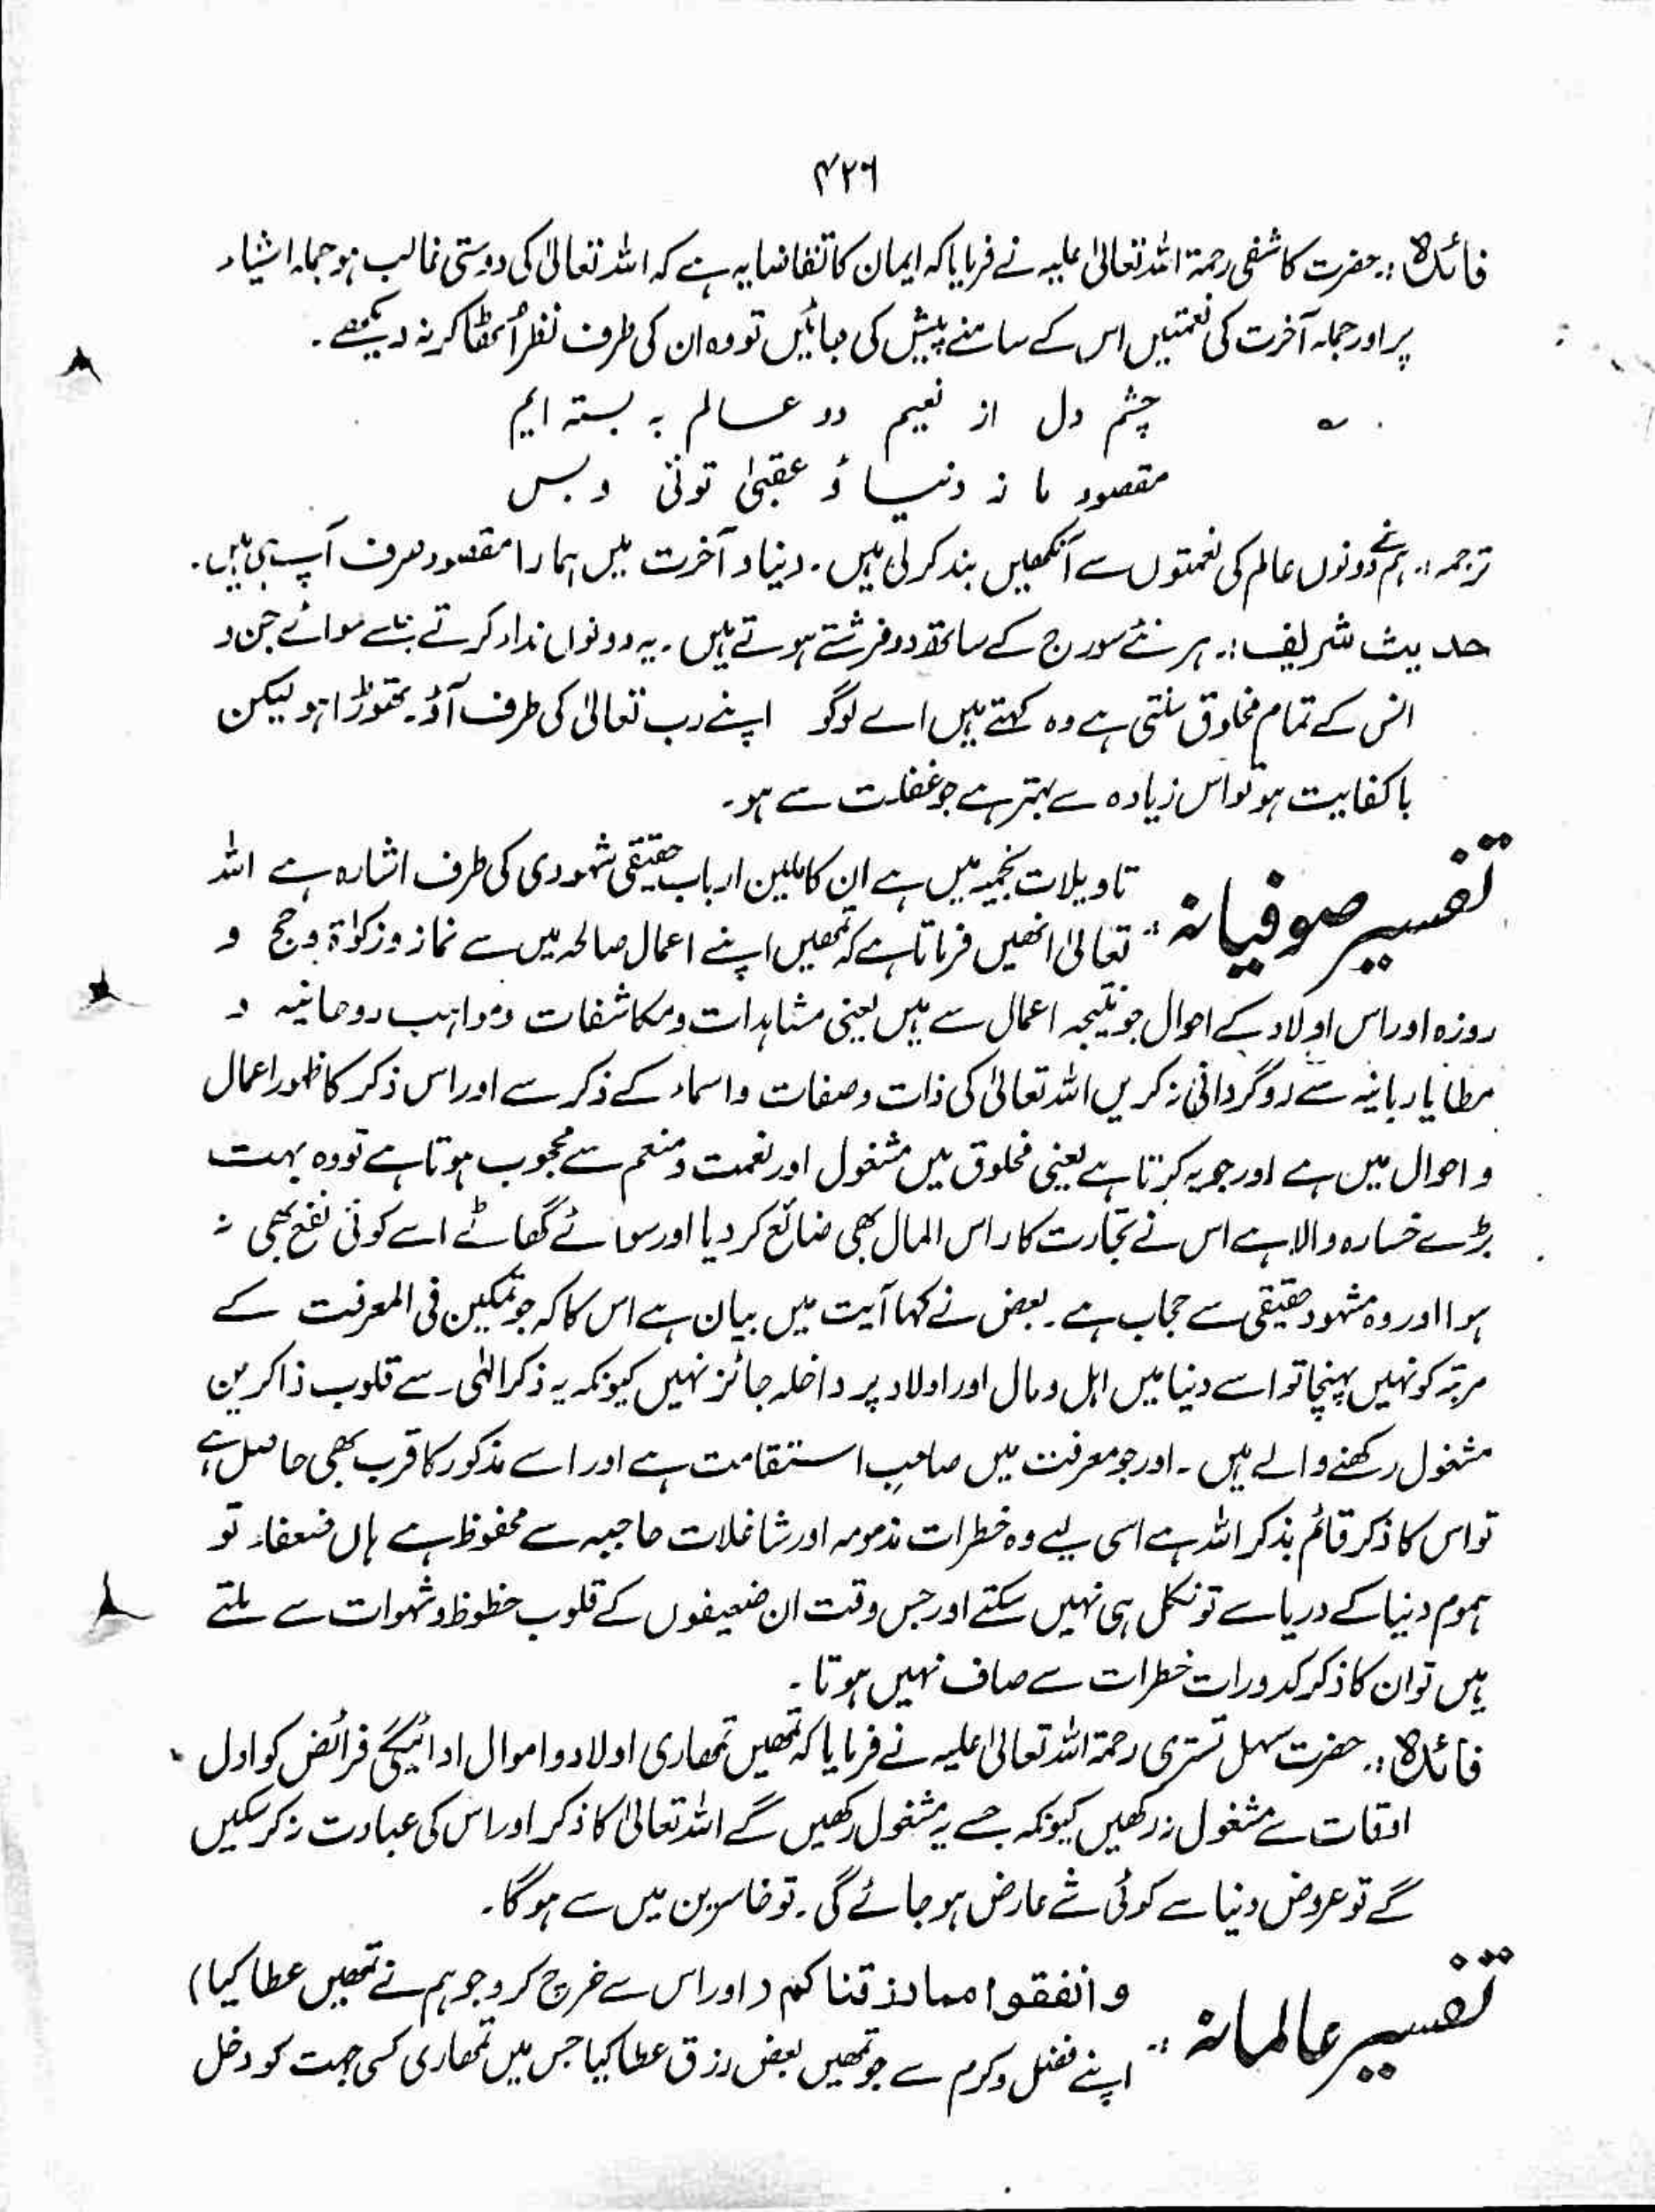 ۴۲۶
فائدہ :۔ حضرت کاشفی رحمۃ اللہ تعالیٰ علیہ نے فرمایا کہ ایمان کا تقاضا یہ ہے کہ اللہ تعالیٰ کی دوستی غالب ہو جملہ اشیاء
پر اور جملہ آخرت کی نعمتیں اس کے سامنے پیش کی جائیں تو وہ ان کی طرف نظر اُٹھا کر نہ دیکھے ۔
چشم دل از نعیم دو عالم بہ بستہ ایم
مقصود ما ز دنیا ؤ عقبیٰ توئی و بس
ترجمہ :۔ ہم نے دونوں عالم کی نعمتوں سے آنکھیں بند کر لی ہیں ۔ دنیا و آخرت میں ہمارا مقصود صرف آپ ہی ہیں ۔
حدیث شریف :۔ ہر نئے سورج کے ساتھ دو فرشتے ہوتے ہیں ۔ یہ دونوں نداء کرتے ہیں سوائے جن و
انس کے تمام مخلوق سنتی ہے وہ کہتے ہیں اے لوگو اپنے رب تعالیٰ کی طرف آؤ ۔ تھوڑا ہو لیکن
باکفایت ہو تو اس زیادہ سے بہتر ہے جو غفلت سے ہو ۔
تفسیر صوفیانہ :۔ تاویلات نجمیہ میں ہے ان کاملین ارباب حقیقی شہودی کی طرف اشارہ ہے اللہ
تعالیٰ انھیں فرماتا ہے کہ تمھیں اپنے اعمال صالحہ میں سے نماز و زکوٰۃ و حج و
روزہ اور اس اولاد کے احوال جو نتیجہ اعمال سے ہیں یعنی مشاہدات و مکاشفات و مواہب روحانیہ و
عطایا ربانیہ سے روگردانی نہ کریں اللہ تعالیٰ کی ذات و صفات و اسماء کے ذکر سے اور اس ذکر کا ظہور اعمال
و احوال میں ہے اور جو یہ کرتا ہے یعنی مخلوق میں مشغول اور نعمت و منعم سے محجوب ہوتا ہے تو وہ بہت
بڑے خسارہ والا ہے اس نے تجارت کا راس المال بھی ضائع کر دیا اور سوائے گھاٹے اسے کوئی نفع بھی نہ
ہوا اور وہ مشہود حقیقی سے حجاب ہے ۔ بعض نے کہا آیت میں بیان ہے اس کا کہ جو تمکین فی المعرفت کے
مرتبہ کو نہیں پہنچا تو اسے دنیا میں اہل و مال اور اولاد پر داخلہ جائز نہیں کیونکہ یہ ذکر الٰہی سے قلوب ذاکرین
مشغول رکھنے والے ہیں ۔ اور جو معرفت میں صاحبِ استقامت ہے اور اسے مذکور کا قرب بھی حاصل ہے
تو اس کا ذکر قائم بذکر اللہ ہے اسی لیے وہ خطرات مذمومہ اور شاغلات حاجبہ سے محفوظ ہے ہاں ضعفاء تو
ہموم دنیا کے دریا سے تو نکل ہی نہیں سکتے اور جس وقت ان ضعیفوں کے قلوب حظوظ و شہوات سے ملتے
ہیں تو ان کا ذکر کدورات خطرات سے صاف نہیں ہوتا ۔
فائدہ :۔ حضرت سہل تستری رحمۃ اللہ تعالیٰ علیہ نے فرمایا کہ تمھیں تمھاری اولاد و اموال ادائیگی فرائض کو اول
اوقات سے مشغول نہ رکھیں کیونکہ جسے یہ مشغول رکھیں گے اللہ تعالیٰ کا ذکر اور اس کی عبادت نہ کر سکیں
گے تو عروض دنیا سے کوئی شے عارض ہو جائے گی ۔ تو خاسرین میں سے ہو گا ۔
تفسیر عالمانہ :۔ وانفقوا مما رزقناکم ( اور اس سے خرچ کرو جو ہم نے تمھیں عطا کیا )
اپنے فضل و کرم سے جو تمھیں بعض رزق عطا کیا جس میں تمھاری کسی جہت کو دخل